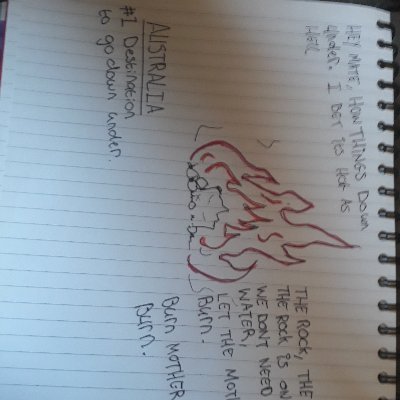 HEY MATE, HOW THINGS DOWN
Under. I BET ITS HOT AS
HELL
AUSTRALIA
#1 Destination
to go down under.
THE ROCK, THE
THE ROCK IS ON
WE DONT NEED
WATER,
LET THE MOTH
Burn.
Burn MOTHER
Burn.